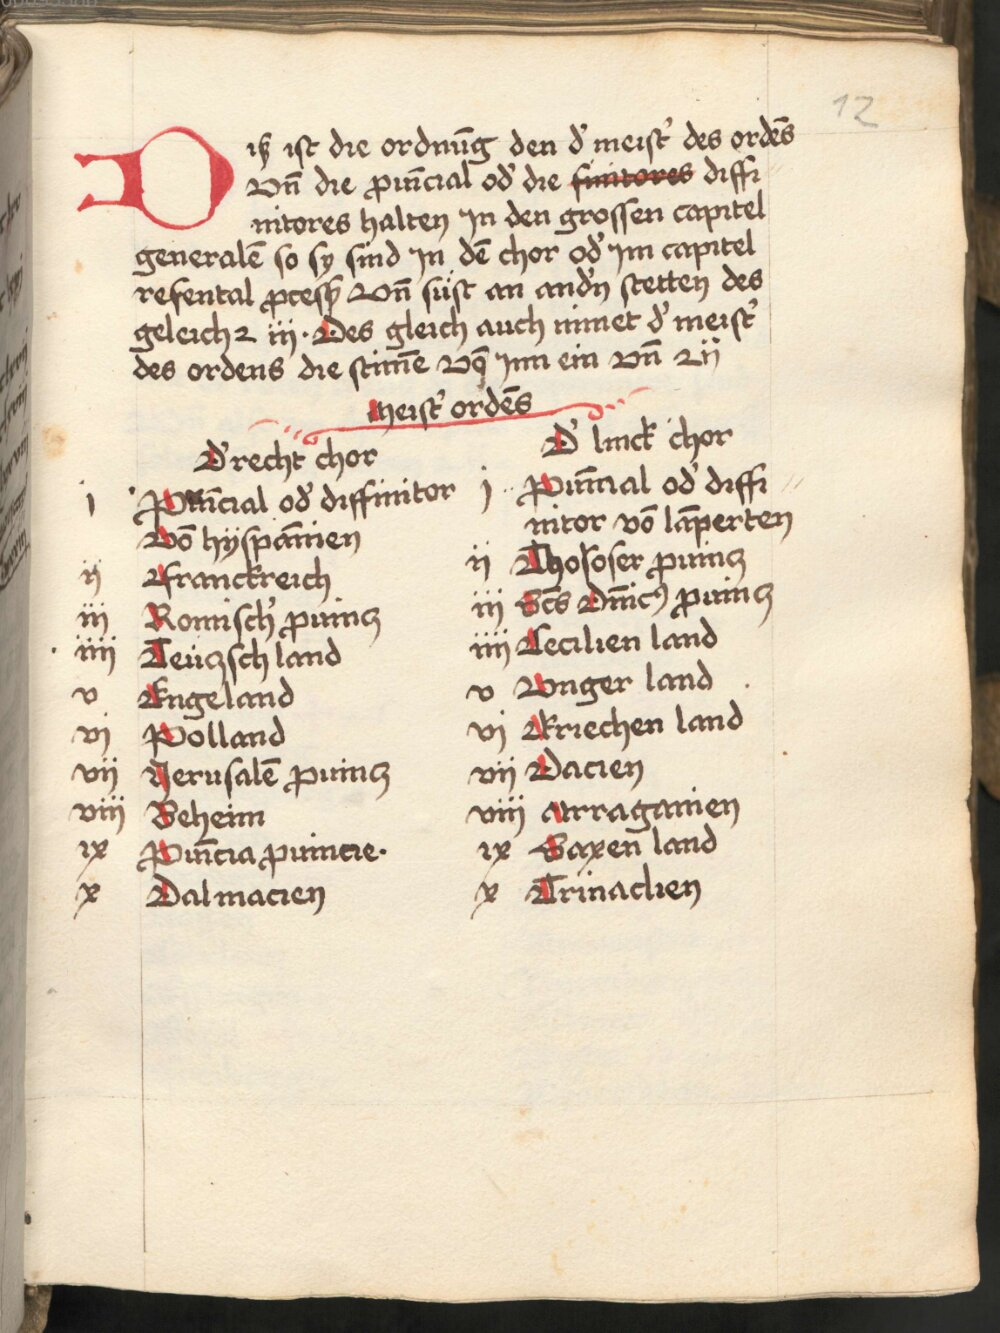 12
Diß ist die ordnūg den d' meist' des ordēs
Vn̄ die ꝓuīncial od' die finitores diffi
nitores halten Jn den grossen capitel
generalē so sy sind Jn dē chor od' im capitel
refental ꝓcess Vn̄ süst an and'n stetten des
geleich 2 iii. Des gleich auch nimet d' meist'
des ordens die stim̄e Vō Jnn ein vn̄ 2ii
Meist' ordēs
D' recht chor
i ꝓuīncial od' diffinitor
Vō hyspānien
ii Franckreich
iii Romisch' ꝓuintz
iiii Teüczsch land
v Engeland
vi Polland
vii Jerusalē ꝓuintz
viii Beheim
ix ꝓuīncia ꝓuincie.
x Dalmacien
D' linck chor
i ꝓuīncial od' diffi
nitor vō lāperten
ii Tholoser ꝓuintz
iii Scs Dnīcꝰ ꝓuintz
iiii Cecilien land
v Vnger land
vi Kriechen land
vii Dacien
viii Arraganien
ix Saxen land
x Trinaclien